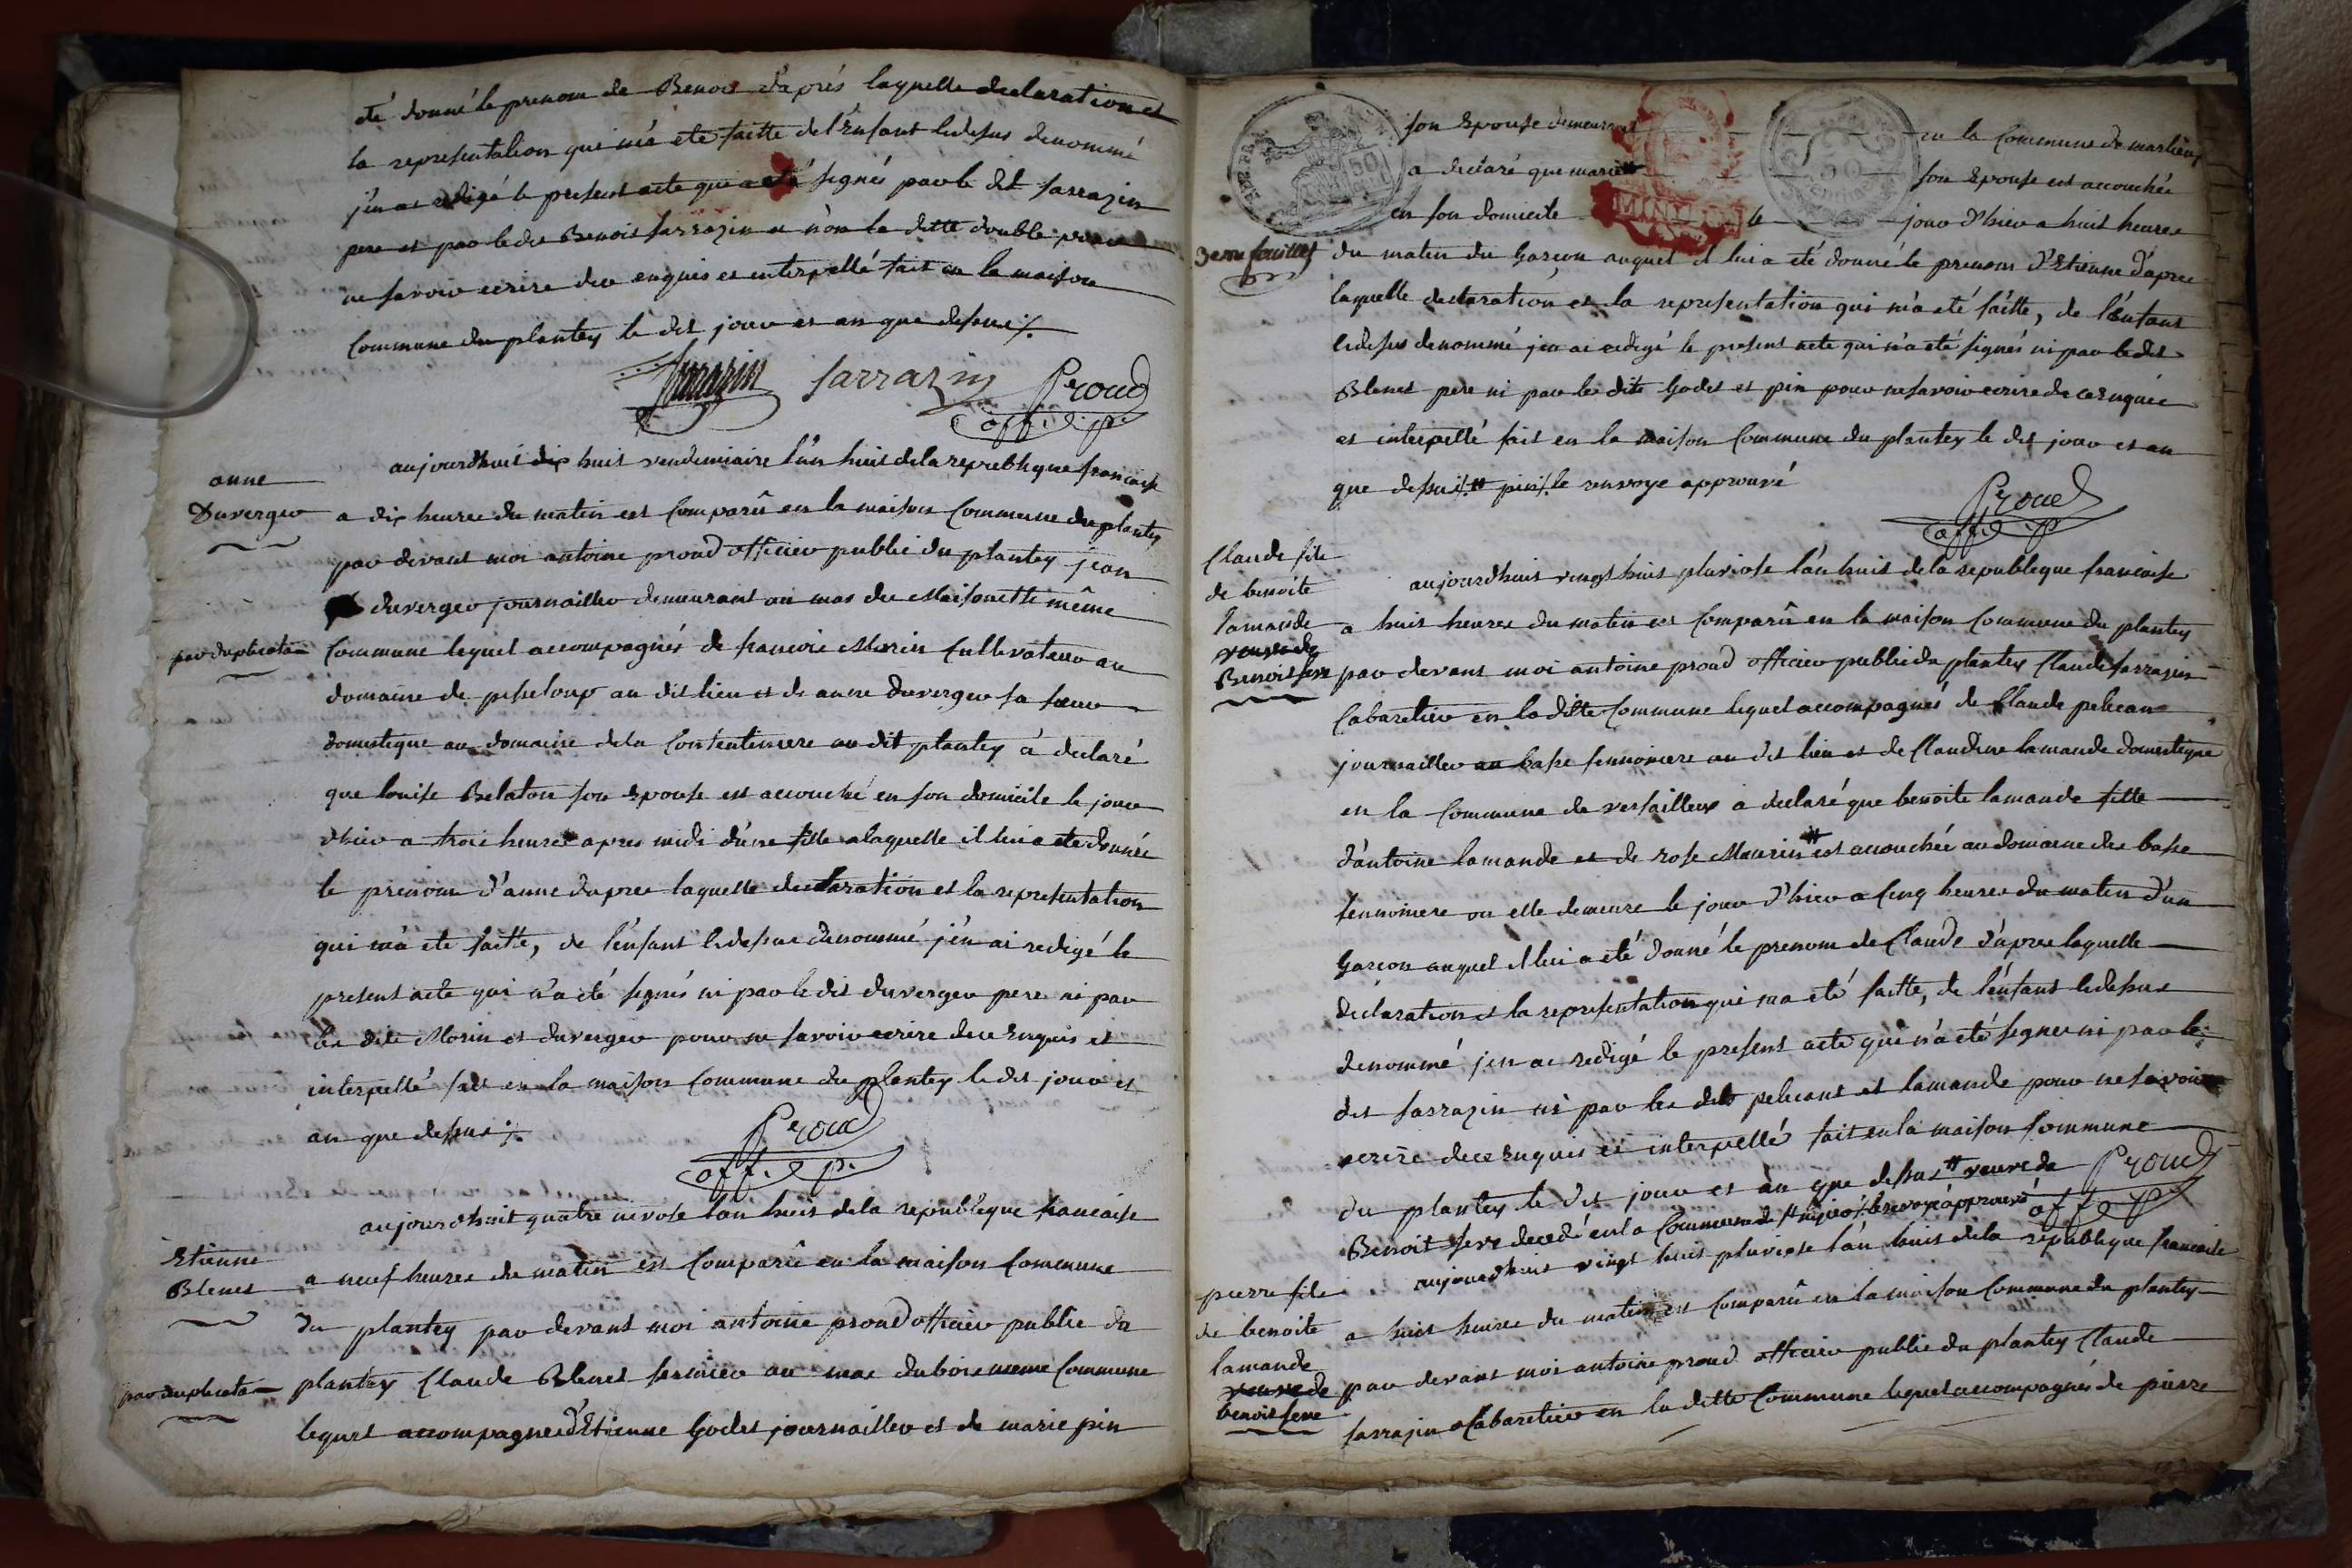 été donné le prenom de Benoit d'aprés laquelle declaration et
la representation qui m'a ete faitte de l'Enfant cidessus denommé
j'en ai redigé le present acte qui a été signés par le dit sarrazin
pere et par ledit Benoit sarrazin et non la ditte double pour
ne savoir ecrire de ce enquis et interpellé fait en la maison
Commune du plantey le dit jour et an que dessus ./.
Sarrazin sarrazin Proud
off. p.
anne
Duverger
par duplicata
aujourdhuit dix huit vendemiaire l'an huit de la republique francaise
a dix heures du matin est Comparû en la maison Commune du plantey
par devant moi antoine proud officier public du plantey jean
duverger journaillier demeurant au mas des Maisonette même
Commune lequel accompagnés de francois Morin Cultivateur au
domaine de pisseloup au dit lieu et de anne duverger sa sœur
domestique au domaine de la Contentiniere au dit plantey a declaré
que louise Belaton son Epouse est accouché en son domicile le jour
d'hier a trois heures apres midi d'une fille a laquelle il lui a ete donné
le prenom d'anne d'apres laquelle declaration et la representation
qui m'a ete faitte, de l'enfant cidessus denommé j'en ai redigé le
present acte qui n'a été signés ni par ledit duverger pere ni par
les dits Morin et duverger pour ne savoir ecrire de ce Enquis et
interpellé fait en la maison Commune du plantey le dit jour et
an que dessus ./.
Proud
off. p.
Etienne
Blenet
par duplicata
aujourdhuit quatre nivose l'an huit de la republique francaise
a neuf heures du matin est Comparû en la maison Commune
du plantey par devant moi antoine proud officier public du
plantey Claude Blenet fermier au mas du bois meme Commune
lequel accompagnés d'Etienne Godet journaillier et de marie pin
son Epouse demeurant en la Commune de marlieux
a declaré que mariee son Epouse est accouchée
en son domicile le jour d'hier a huit heures
3eme feuillet
du matin du Garçon auquel il lui a été donné le prenom d'Etienne d'apres
laquelle declaration et la representation qui m'a eté faitte, de l'Enfant
cidessus denommé j'en ai redigé le present acte qui n'a eté signés ni par ledit
Blenet pere ni par les dits Godet et pin pour ne savoir ecrire de ce enquis
et interpellé fait en la maison Commune du plantey le dit jour et an
que dessus ./. # pin ./. le renvoye approuvé
Proud
off. p
Claude fils
de benoite
lamande
veuve de
Benoit fere
aujourdhuit vingt huit pluviose l'an huit de la republique francaise
a huit heures du matin est Comparû en la maison Commune du plantey
par devant moi antoine proud officier public du plantey Claude sarrazin
Cabaretier en la ditte Commune lequel accompagnés de Claude pelican
journaillier au basse fennoniere au dit lieu et de Claudine lamande domestique
en la Commune de versailleux a declaré que benoite lamande fille
d'antoine lamande et de rose Maurin # est accouchée au domaine des basse
fennoniere ou elle demeure le jour d'hier a Cinq heures du matin d'un
Garcon auquel il lui a été donné le prenom de Claude d'apres laquelle
declaration et la representation qui m'a eté faitte, de l'enfant cidessus
denommé j'en ai redigé le present acte qui n'a eté signer ni par le
dit sarrazin ni par les dits pelicans et lamande pour ne savoir
ecrire de ce Enquis et interpellé fait en la maison Commune
du plantey le dit jour et an que dessus # veuve de
Benoit fere decedé en la Commune de ./. le renvoye approuvé
Proud
off. p
pierre fils
de benoite
lamande
veuve de
benoit fere
aujourdhuit vingt huit pluviose l'an huit de la republique francaise
a huit heures du matin est Comparû en la maison Commune du plantey
par devant moi antoine proud officier public du plantey Claude
sarrazin Cabaretier en la ditte Commune lequel accompagnés de pierre